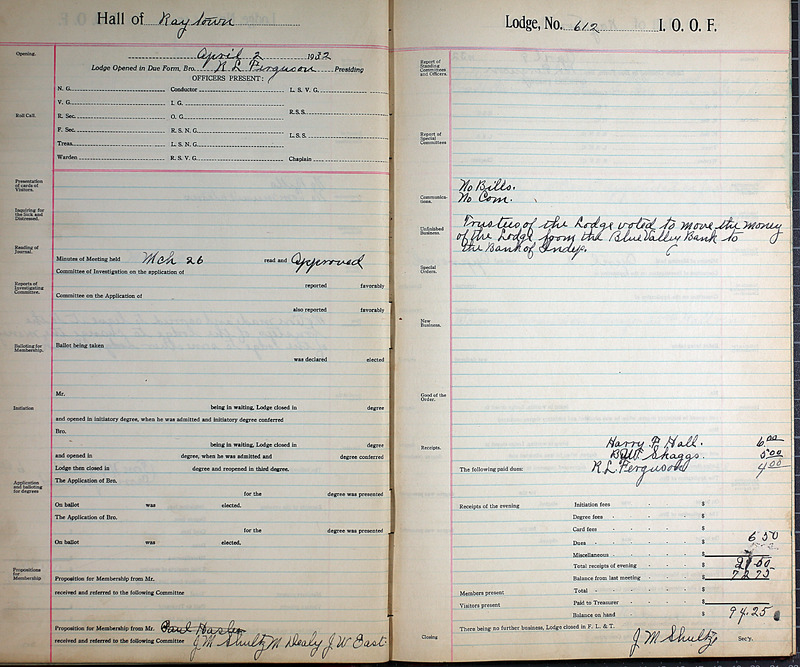 Hall of Raytown
April 2 1932
Opening.
Lodge Opened in Due Form, Bro. R L Ferguson Presiding
OFFICERS PRESENT:
Roll Call.
N. G. Conductor L. S. V. G.
V. G. I. G.
R. Sec. O. G. R.S.S.
F. Sec. R. S. N. G.
Treas. L. S. N. G. L.S.S.
Warden R. S. V. G. Chaplain
Presentation of cards of Visitors.
Inquiring for the Sick and Distressed.
Reading of Journal.
Minutes of Meeting held Mch 26 read and approved
Committee of Investigation on the application of
Reports of Investigating Committee.
reported favorably
Committee on the Application of
also reported favorably
Balloting for Membership.
Ballot being taken
was declared elected
Mr.
Initiation
being in waiting, Lodge closed in degree
and opened in initiatory degree, when he was admitted and initiatory degree conferred
Bro.
being in waiting, Lodge closed in degree
and opened in degree, when he was admitted and degree conferred
Lodge then closed in degree and reopened in third degree.
Application and balloting for degrees
The Application of Bro.
for the degree was presented
On ballot was elected.
The Application of Bro.
for the degree was presented
On ballot was elected.
Propositions for Membership
Proposition for Membership from Mr.
received and referred to the following Committee
Proposition for Membership from Mr.
received and referred to the following Committee J. M Shultz M Dealy J. W East
Lodge, No. 612 I. O. O. F.
Report of Standing Committees and Officers.
Report of Special Committees
No Bills.
Communications.
No Com.
Unfinished Business.
Trustees of the Lodge voted to move the money
of the Lodge from the Blue Valley Bank to
the Bank of Indep.
Special Orders.
New Business.
Good of the Order.
Receipts.
Harry P Hall. 6.00
B.W. Skaggs. 5.00
The following paid dues: R L Ferguson 4.00
Receipts of the evening Initiation fees $
Degree fees $
Card fees $
Dues $ 6 50
Miscellaneous $
Total receipts of evening $ 21 50
Balance from last meeting $ 72 75
Members present Total $
Visitors present Paid to Treasurer $
Balance on hand $ 94.25
Closing
There being no further business, Lodge closed in F. L. & T.
J M Shultz Sec'y.